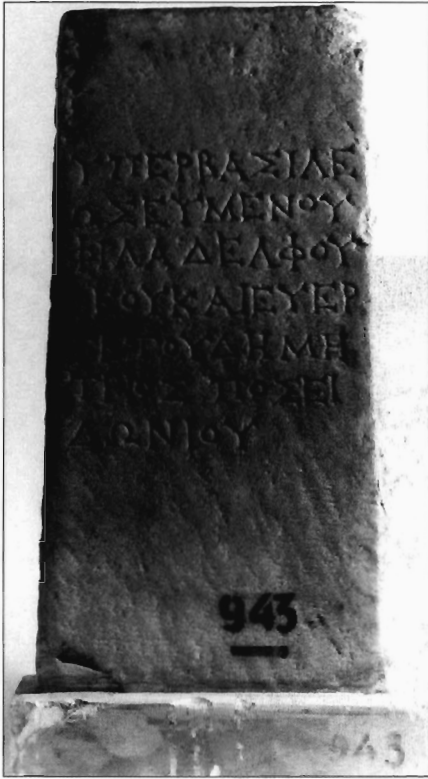 ΥΠΕΡΒΑΣΙΛΕ
ΩΣΕΥΜΕΝΟΥ
ΦΙΛΑΔΕΛΦΟΥ
ΘΕΟΥΚΑΙΕΥΕΡ
ΓΕΤΟΥΔΗΜΗ
ΤΡΙΟΣΠΟΣΕΙ
ΔΩΝΙΟΥ
943
943